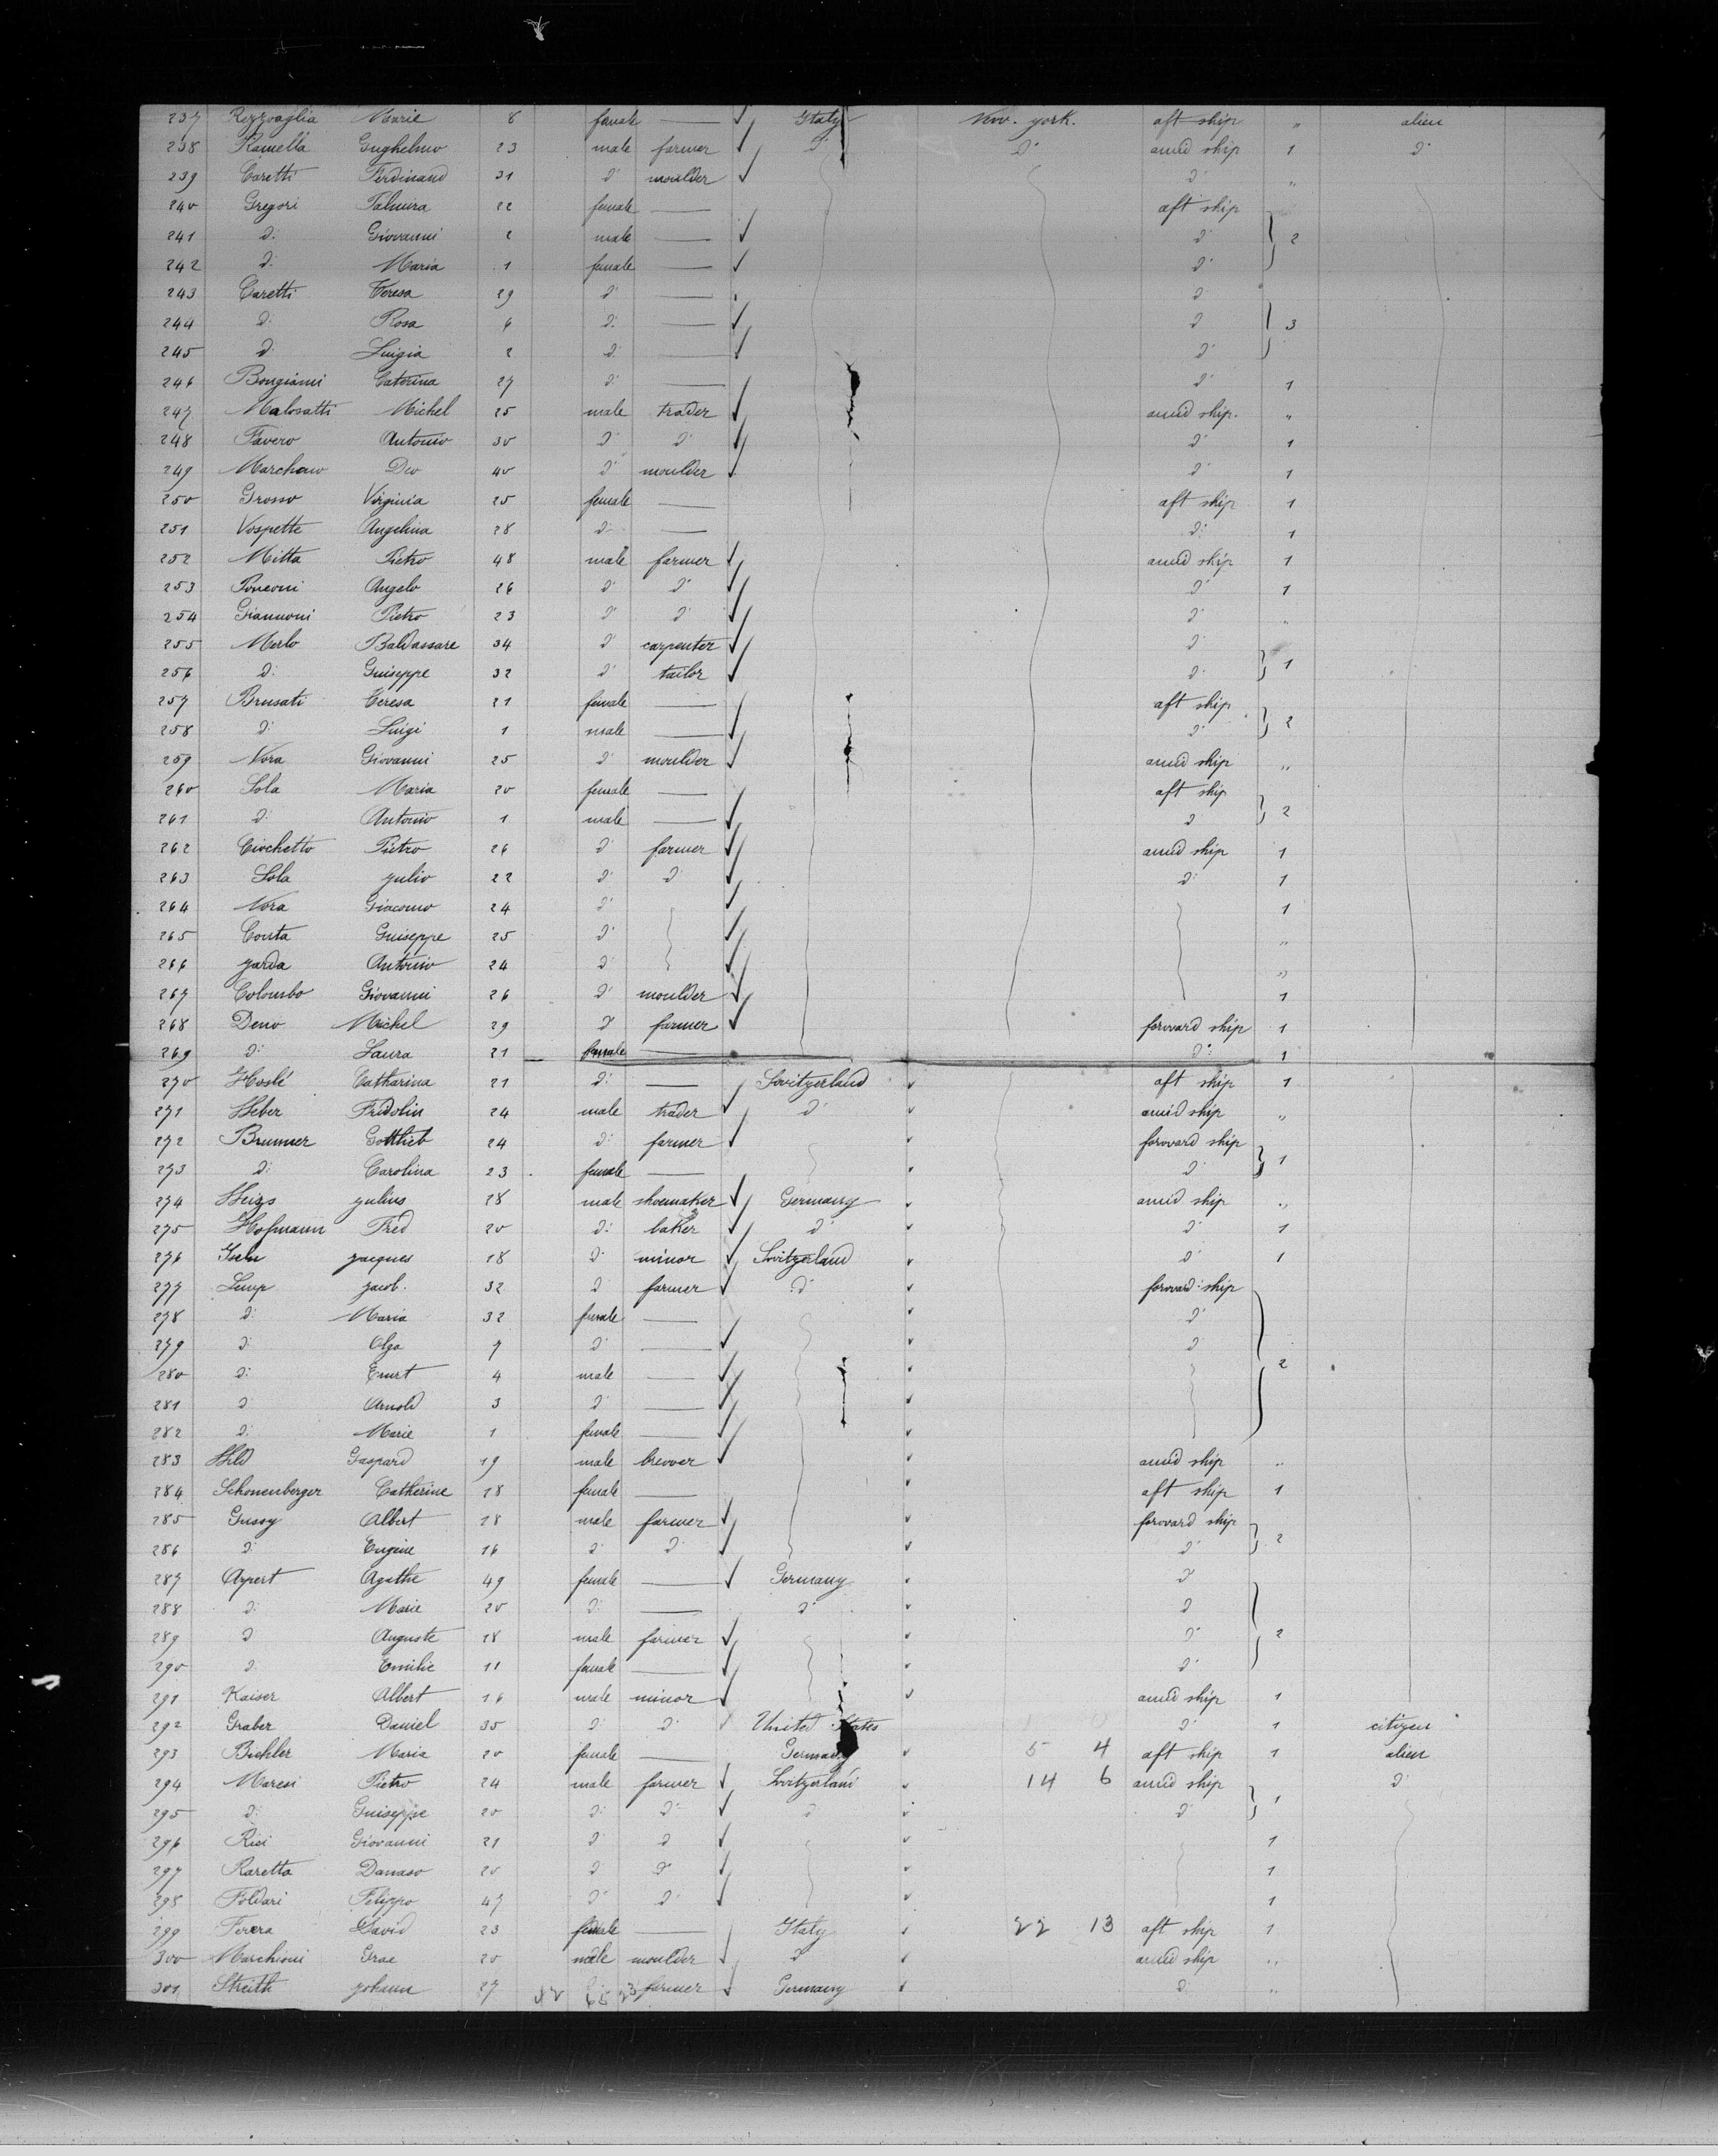 237 Rizzoaglia Marie 8 female — Italy New. york. aft ship " alien
238 Ramella Gughelmo 23 male farmer d° d° amid ship 1 d°
239 Caretti Ferdinand 31 d° moulder d° "
240 Gregori Palmira 22 female — aft ship
241 d: Giovanni 2 male — d° 2
242 d: Maria 1 female — d°
243 Caretti Teresa 29 d° — d°
244 d: Rosa 6 d: — d 3
245 d: Luigia 2 d: — d°
246 Bongianni Caterina 27 d: — d° 1
247 Malosatti Michel 25 male trader amid ship. "
248 Favero Antonio 30 d° d° d° 1
249 Marchaw Deo 40 d° moulder d° 1
250 Grosso Virginia 25 female — aft ship 1
251 Vospette Angelina 28 d: — d: 1
252 Mitta Pietro 48 male farmer amid ship 1
253 Ponconi Angelo 26 d d° d° 1
254 Giannoni Pietro 23 d° d° d° "
255 Merlo Baldassare 34 d° carpenter d°
256 d: Guiseppe 32 d° tailor d: 1
257 Brusati Teresa 21 female — aft ship
258 d: Luigi 1 male — d° 2
259 Nora Giovanni 25 d° moulder amid ship "
260 Sola Maria 20 female — aft ship
261 d: Antonio 1 male — d 2
262 Ciochetto Pietro 26 d° farmer amid ship 1
263 Sola yulio 22 d° d° d: 1
264 Nora Giacomo 24 d° 1
265 Conta Guiseppe 25 d° "
266 yarda Antonio 24 d "
267 Colombo Giovanni 26 d° moulder 1
268 Deno Michel 29 d farmer forward ship 1
269 d: Laura 21 female — d°: 1
270 Hoslé Catharina 21 d: — Switzerland aft ship 1
271 Heber Fridolin 24 male trader d° amid ship "
272 Brunner Gottlieb 24 d: farmer forward ship
273 d: Carolina 23 female — d° 1
274 yulius 28 male shoemaker Germany amid ship "
275 Hofmann Fred 20 d: baker d° d° 1
276 yacques 18 d° minor Switzerland d° 1
277 yacob. 32 d farmer d° forward ship
278 d: Maria 32 female — d°
279 d: Olga 7 d° — d
280 d: Ernst 4 male — 2
281 d Arnold 3 d° —
282 d: Marie 1 female —
283 Gaspard 19 male brewer amid ship "
284 Schonenberger Catherine 18 female — aft ship 1
285 Gussy Albert 18 male farmer forward ship
286 d: Eugene 16 d d d° 2
287 Arpert Agathe 49 female — Germany d
288 d: Marie 20 d: — d° d
289 d Auguste 18 male farmer d° 2
290 d: Emilie 11 female — d°
291 Kaiser Albert 16 male minor amid ship 1
292 Graber Daniel 35 d: d° United States d° 1 citizen
293 Bichler Maria 20 female — Germany 5 4 aft ship 1 alien
294 Maresi Pietro 24 male farmer Switzerland 14 6 amid ship d°
295 d: Guiseppe 20 d: d° d d° 1
296 Risi Giovanni 21 d° d 1
297 Raretta Damaso 20 d d° 1
298 Foldari Filippo 47 d° d° 1
299 Ferera David 23 female — Italy 22 13 aft ship 1
300 Marchioni Grae 20 male moulder d° amid ship "
301 Streith yohann 27 42 65 23 farmer Germany d "